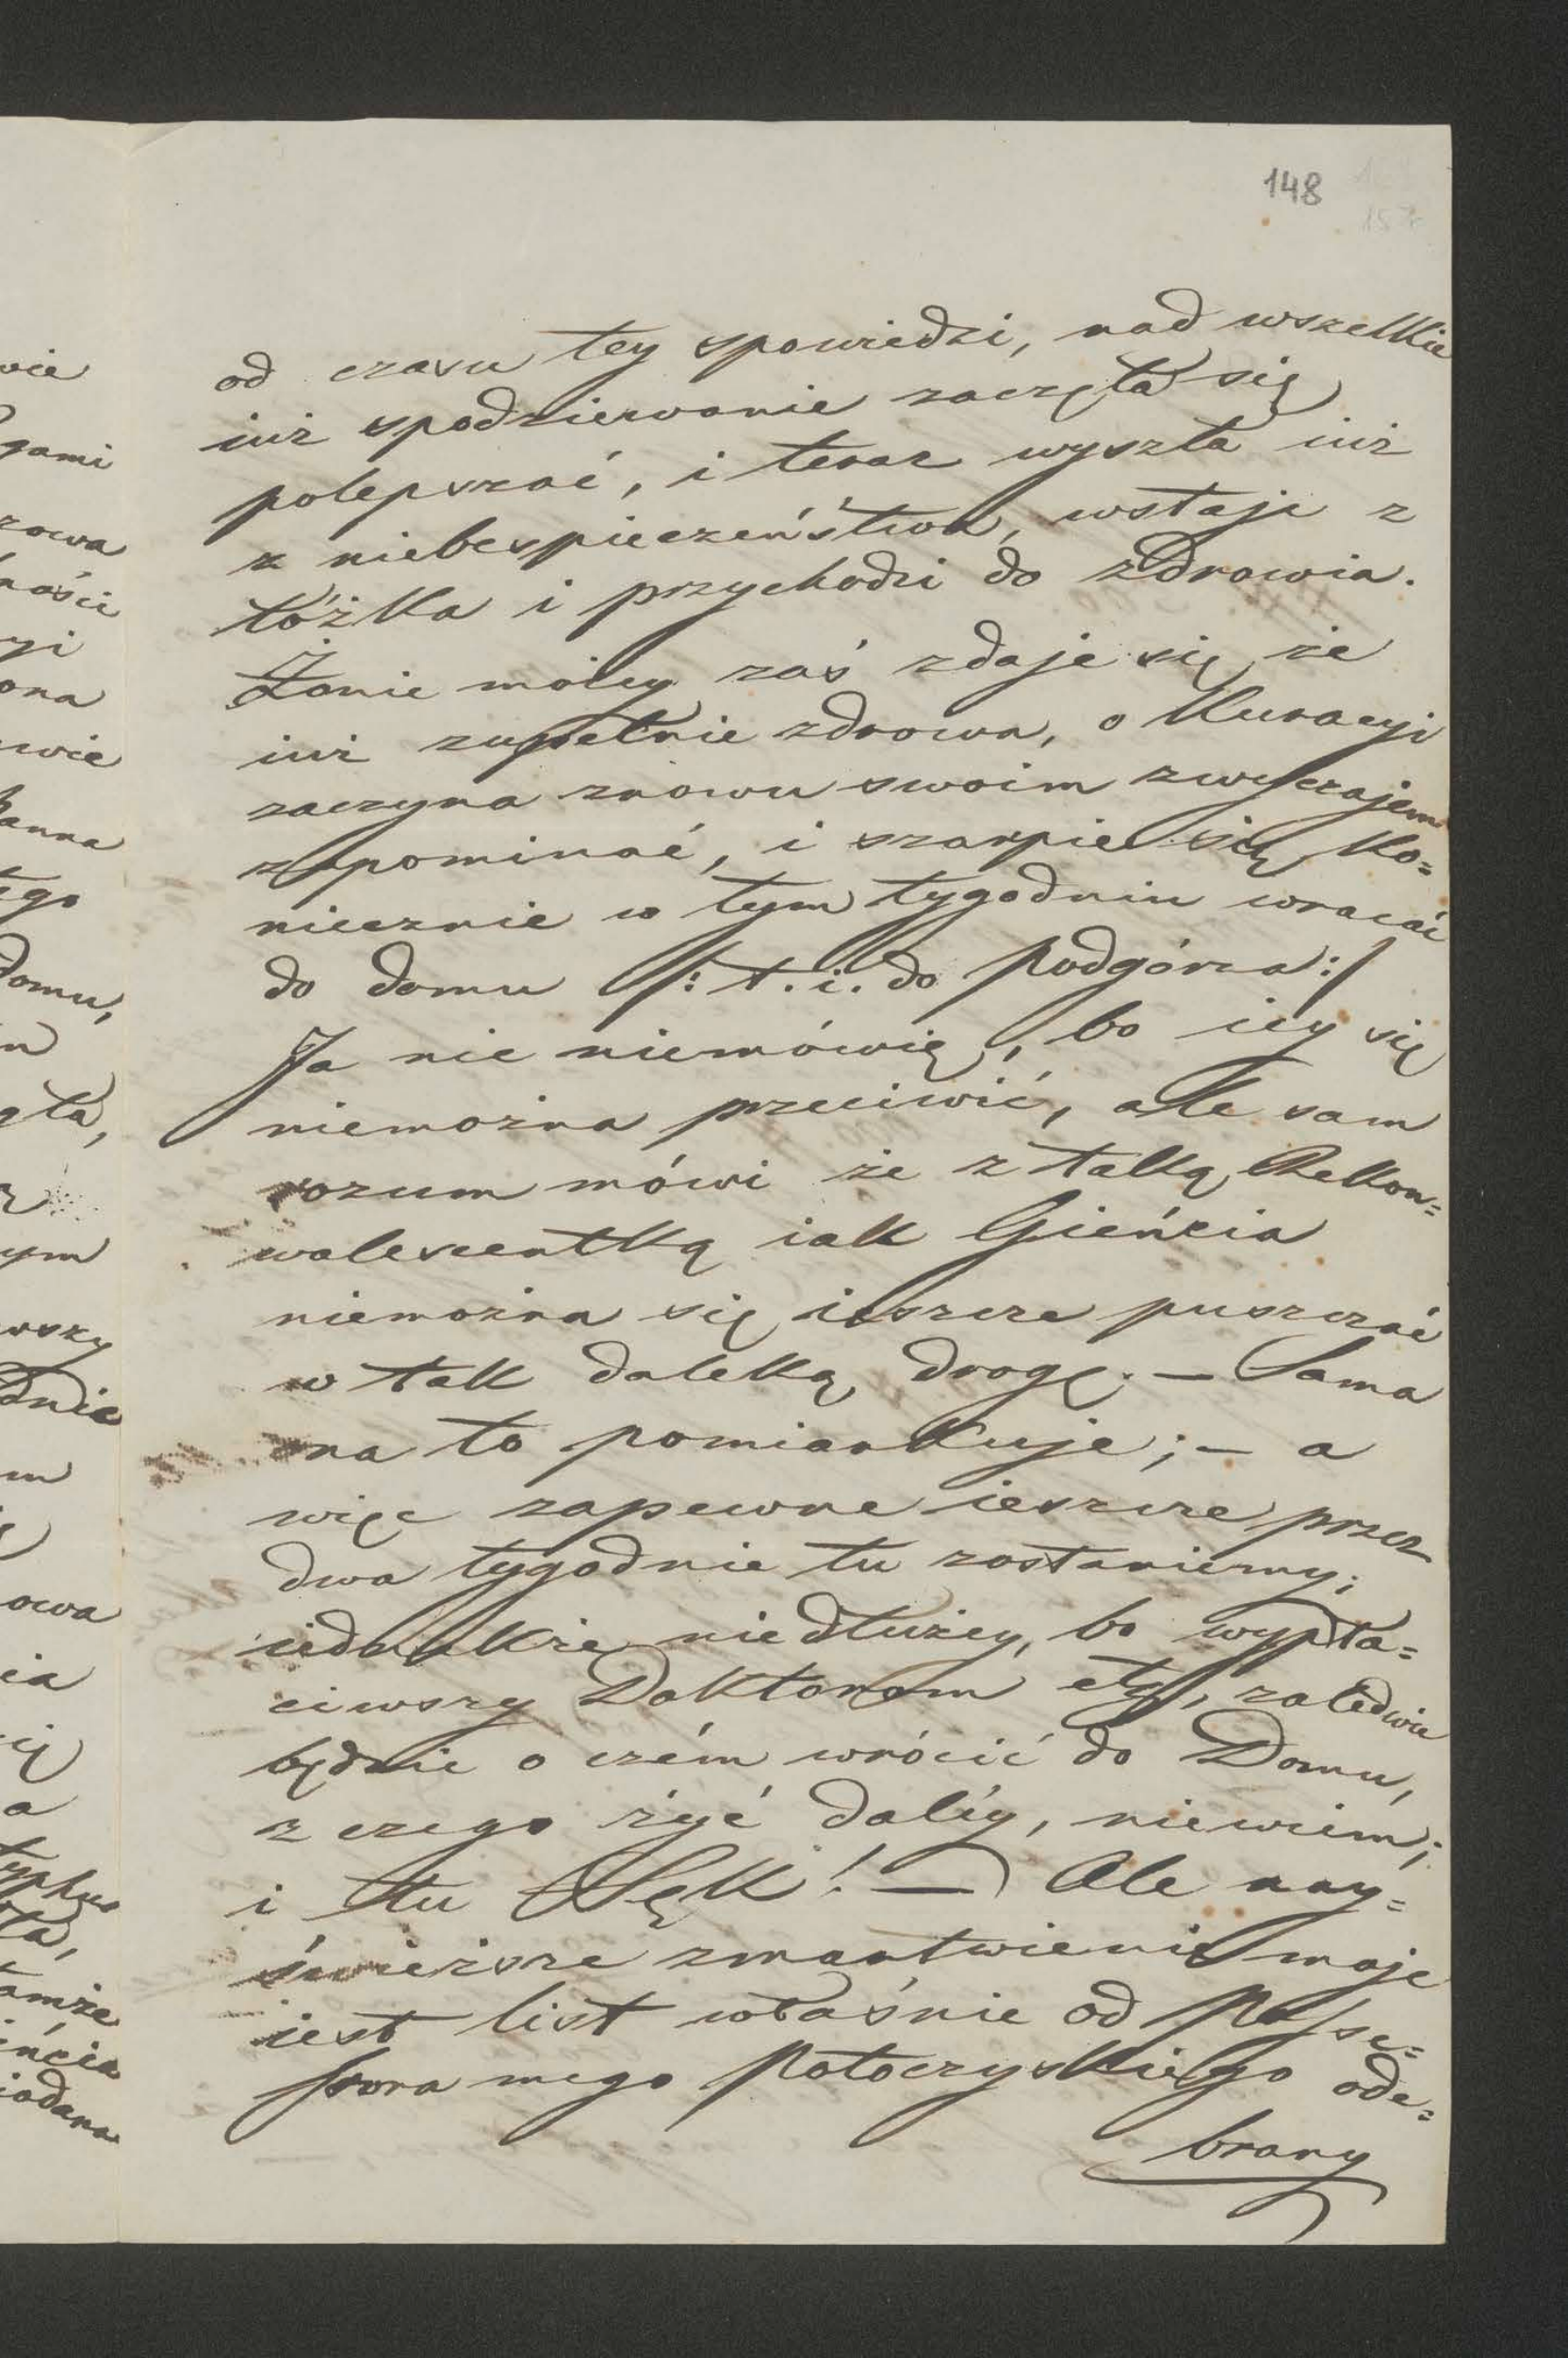 148
od czasu tey spowiedzi, nad wszelkie
iuż spodziewanie zaczęła się
polepszać, i teraz wyszła iuż
z niebespieczeństwa, wstaje z
łóżka i przychodzi do zdrowia.
Żonie moiey zaś zdaje się że
iuż zupełnie zdrowa, o Kuracyi
zaczyna znowu swoim zwyczajem
zapominać, i szarpie się Ko=
niecznie w tym tygodniu wracać
do domu /: t. i. do Podgórza :/
Ja nic niemówię, bo iey się
niemożna przeciwić, ale sam
rozum mówi że z taką Rekon=
walescentką iak Gieńcia
niemożna się ieszcze puszczać
w tak daleką drogę. — Sama
ona to pomiarkuje; — a
więc zapewne ieszcze przez
dwa tygodnie tu zostaniemy;
iednakże niedłużey, bo wypła=
ciwszy Doktorom etc, zaledwie
będzie o czém wrócić do Domu,
z czego żyć daléy, niewiem;
i tu Sęk! — Ale nay=
świeższe zmartwienie moje
iest list właśnie od Posse=
ssora mego Potoczyskiego ode=
brany
vie
gami
zowa
ności
ona
wie
anna
tego
domu,
ęła,
ym
wszy
dnie
m
owa
ia
a
typhus
ła,
tamże
ieńcia
iodana